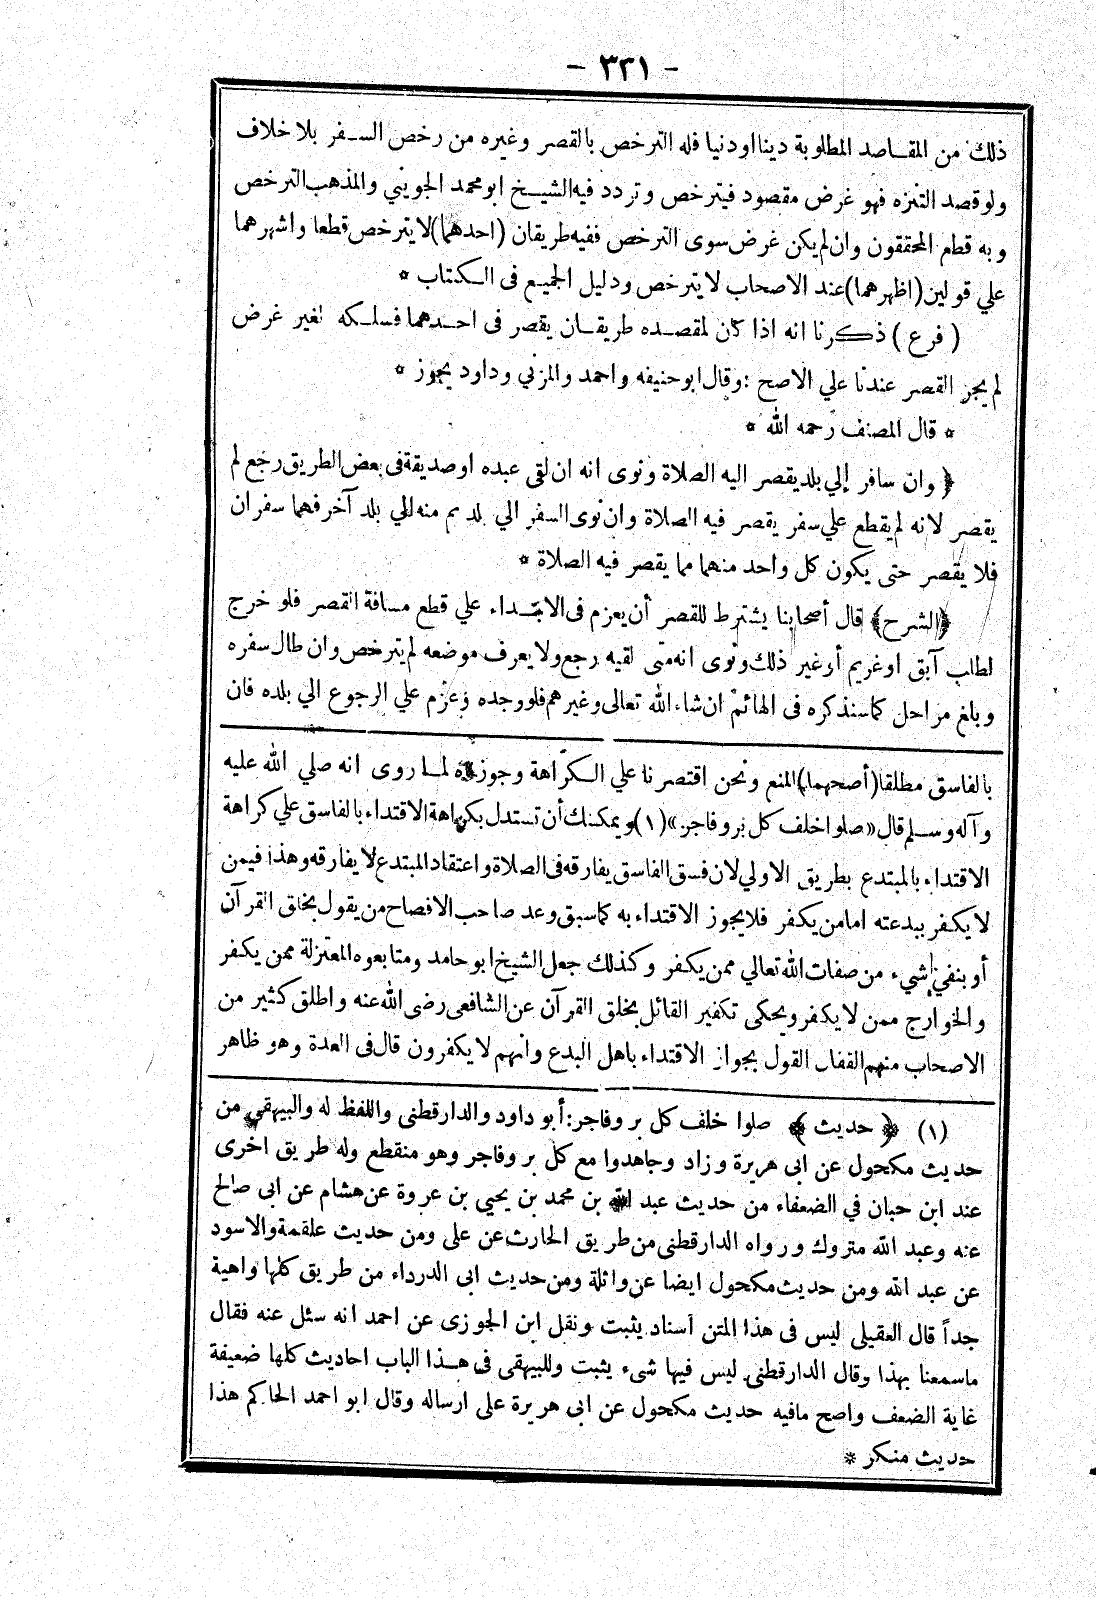 - ٣٣١ -
ذلك من المقاصد المطلوبة دينا اودنيا فله الترخص بالقصر وغيره من رخص السفر بلا خلاف
ولو قصد التنزه فهو غرض مقصود فيترخص وتردد فيه الشيخ ابو محمد الجويني والمذهب الترخص
وبه قطع المحققون وان لم يكن غرض سوى الترخص ففيه طريقان (احدهما) لا يترخص قطعا واشهرهما
علي قولين (اظهرهما) عند الاصحاب لا يترخص ودليل الجميع فى الكتاب *
( فرع ) ذكرنا انه اذا كان لمقصده طريقان يقصر فى احدهما فسلكه لغير غرض
لم يجز القصر عندنا علي الاصح : وقال ابو حنيفه واحمد والمزني وداود يجوز *
* قال المصنف رحمه الله *
﴿ وان سافر إلي بلد يقصر اليه الصلاة ونوى انه ان لقى عبده او صديقة فى بعض الطريق رجع لم
يقصر لانه لم يقطع علي سفر يقصر فيه الصلاة وان نوى السفر الي بلد ثم منه الي بلد آخر فهما سفران
فلا يقصر حتى يكون كل واحد منهما مما يقصر فيه الصلاة *
﴿الشرح﴾ قال أصحابنا يشترط للقصر أن يعزم فى الابتداء علي قطع مسافة القصر فلو خرج
لطلب آبق او غريم أو غير ذلك ونوى انه متى لقيه رجع ولا يعرف موضعه لم يترخص وان طال سفره
وبلغ مراحل كما سنذكره فى الهائم ان شاء الله تعالى وغيرهم فلو وجده وعزم علي الرجوع الي بلده فان
بالفاسق مطلقا (أصحهما) المنع ونحن اقتصرنا علي الكراهة وجوزه لما روى انه صلي الله عليه
وآله وسلم قال «صلوا خلف كل بر وفاجر» (١) ويمكنك أن تستدل بكراهة الاقتداء بالفاسق علي كراهة
الاقتداء بالمبتدع بطريق الاولي لان فسق الفاسق يفارقه فى الصلاة واعتقاد المبتدع لا يفارقه وهذا فيمن
لا يكفر ببدعته امامن يكفر فلا يجوز الاقتداء به كما سبق وعد صاحب الافصاح من يقول بخلق القرآن
أو بنفي شيء من صفات الله تعالي ممن يكفر وكذلك جعل الشيخ ابو حامد ومتابعوه المعتزلة ممن يكفر
والخوارج ممن لا يكفر ويحكى تكفير القائل بخلق القرآن عن الشافعى رضى الله عنه واطلق كثير من
الاصحاب منهم القفال القول بجواز الاقتداء باهل البدع وانهم لا يكفرون قال فى العدة وهو ظاهر
(١) ﴿ حديث ﴾ صلوا خلف كل بر وفاجر : أبو داود والدارقطنى واللفظ له والبيهقي من
حديث مكحول عن ابى هريرة وزاد وجاهدوا مع كل بر وفاجر وهو منقطع وله طريق اخرى
عند ابن حبان في الضعفاء من حديث عبد الله بن محمد بن يحيي بن عروة عن هشام عن ابى صالح
عنه وعبد الله متروك ورواه الدارقطنى من طريق الحارث عن على ومن حديث علقمة والاسود
عن عبد الله ومن حديث مكحول ايضا عن واثلة ومن حديث ابى الدرداء من طريق كلها واهية
جداً قال العقيلى ليس فى هذا المتن أسناد يثبت ونقل ابن الجوزى عن احمد انه سئل عنه فقال
ماسمعنا بهذا وقال الدارقطنى ليس فيها شىء يثبت وللبيهقى فى هذا الباب احاديث كلها ضعيفة
غاية الضعف واصح مافيه حديث مكحول عن ابى هريرة على ارساله وقال ابو احمد الحاكم هذا
حديث منكر *